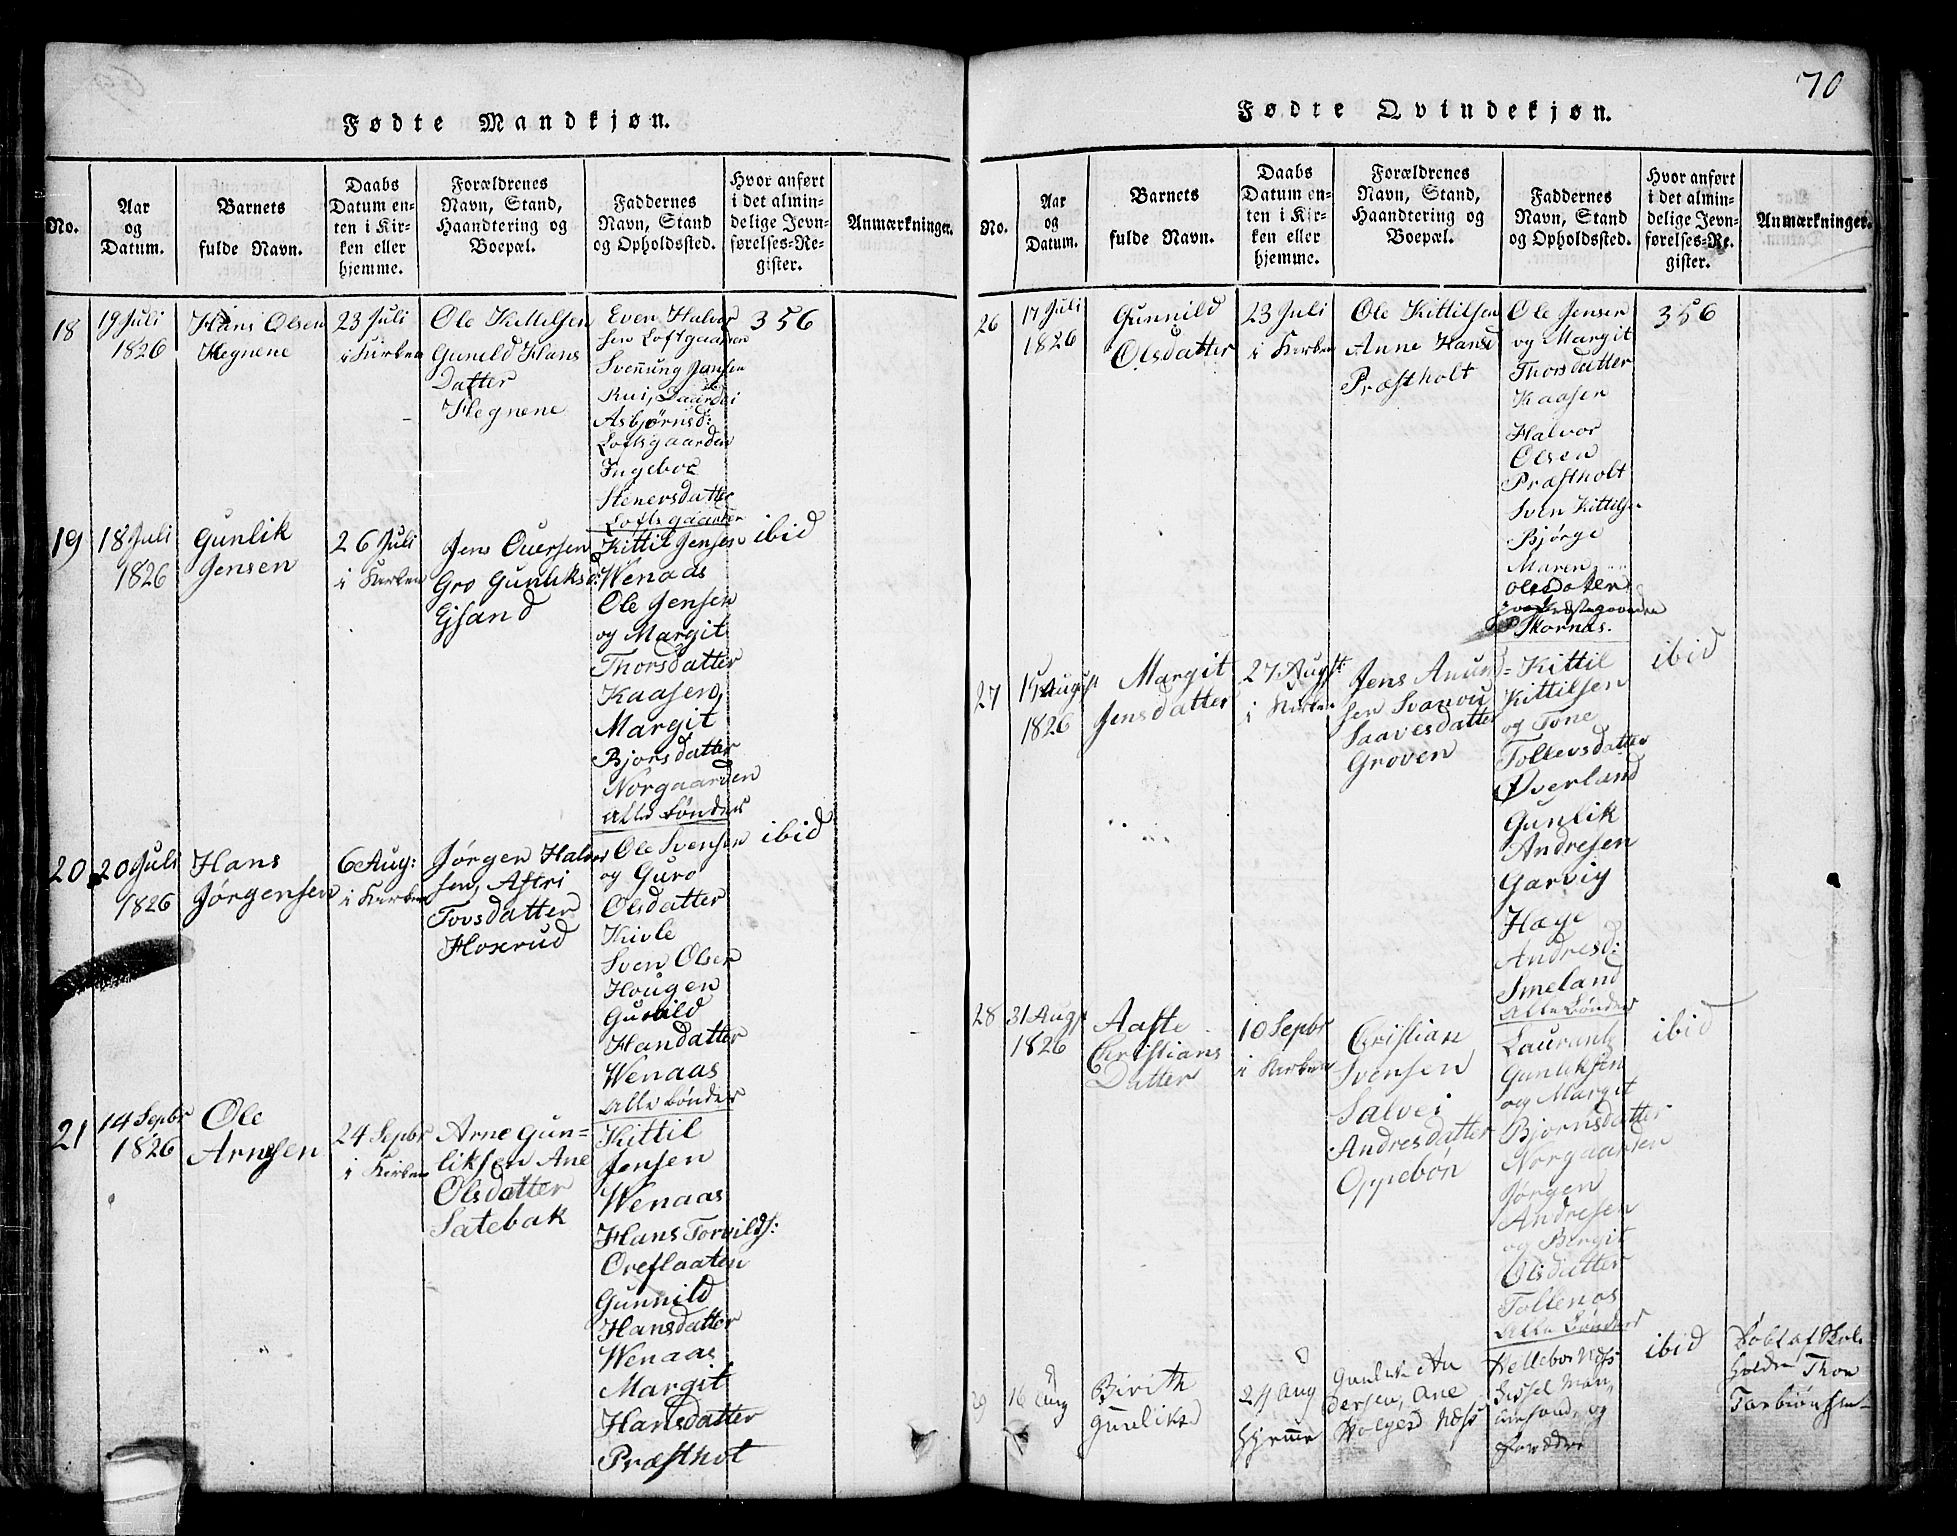 70
Fødte Mandkjøn.
No.
Aar
og
Datum.
Barnets
fulde Navn.
Daabs
Datum en-
ten i Kir-
ken eller
hjemme.
Forældrenes
Navn, Stand,
Haandtering og
Boepæl.
Faddernes
Navn, Stand
og Opholdssted.
Hvor anført
i det almin-
delige Jevn-
førelses-Re-
gister.
Anmærkninger.
18
19 Juli
1826
Hans Olsen
Hegnene
23 Juli
i Kirken
Ole Kittilsen
Gunild Hans
Datter
Hegnene
Even Halvor
sen Loftgaarden
Svennung Jansen
Rui,
Asbjørnsd:
Loftsgaarden
Ingebor
Stenersdatter
Loftsgaarden
356
19
18 Juli
1826
Gunlik
Jensen
26 Juli
i Kirken
Jens Ouersen
Gro Gunliksd:
Gisand
Kittil Jensen
Wenaas
Ole Jensen
og Margit
Thorsdatter
Kaasen,
Margit
Bjorsdatter
Norgaarden
Alle Bønder
ibid
20
20 Juli
1826
Hans
Jørgensen
6 Aug:
i Kirken
Jørgen Halvor
sen, Astri
Tovsdatter
Hoxrud
Ole Svensen
og Guro
Olsdatter
Kivle
Sven Olsen
Hougen
Gunild
Handatter
Wenaas
Alle Bønder
ibid
21
14 Sepbr
1826
Ole
Arnesen
24 Sepbr
i Kirken
Arne Gun=
liksen Ane
Olsdatter
Satebak
Kittil
Jensen
Wenaas
Hans Torvilds:
Oreflaaten
Gunnild
Hansdatter
Wenaas
Margit
Hansdatter
Præsthot
Fødte Qvindekjøn.
No.
Aar
og
Datum.
Barnets
fulde Navn.
Daabs
Datum en-
ten i Kir-
ken eller
hjemme.
Forældrenes
Navn, Stand,
Haandtering og
Boepæl.
Faddernes
Navn, Stand
og Opholdssted.
Hvor anført
i det almin-
delige Jevn-
førelses-Re.
gister.
Anmærkninger.
26
17 Juli
1826
Gunnild
Olsdatter
23 Juli
i Kirken
Ole Kittilsen
Anne Hansd
Præstholt
Ole Jensen
og Margit
Thorsdatter
Kaasen
Halvor
Olsen
Præstholt
Sven Kittilsen
Bjørge
Maren
Olsdatter
Skornes.
356
27
August
1826
Margit
Jensdatter
27 Augst:
i Kirken
Jens Anun=
sen Svanou
Saavesdatter
Groven
Kittil
Kittilsen
og Tone
Tollevsdatter
Øverland
Gunlik
Andresen
Garvig
Hæge
Andresd:
Smeland
Alle Bønder
ibid
28
31 Augst
1826
Aaste
Christians
Datter
10 Sepbr
i Kirken
Christian
Svensen
Salvei
Andresdatter
Oppebøn
Laurantz
Gunliksen
og Margit
Bjornsdatter
Norgaarden
Jørgen
Andresen
og Bergit
Olsdatter
Tollenas
Alle Bønder
ibid
29
16 Aug
Birith
Gunliksd
24 Aug
Hjemme
Gunlik An
dersen, Ane
Holgesd Næss
Hellebor Næss
Sissel
og
Forældre
ibid
Døbt af Skole
holder Thor
Tarbiønsen